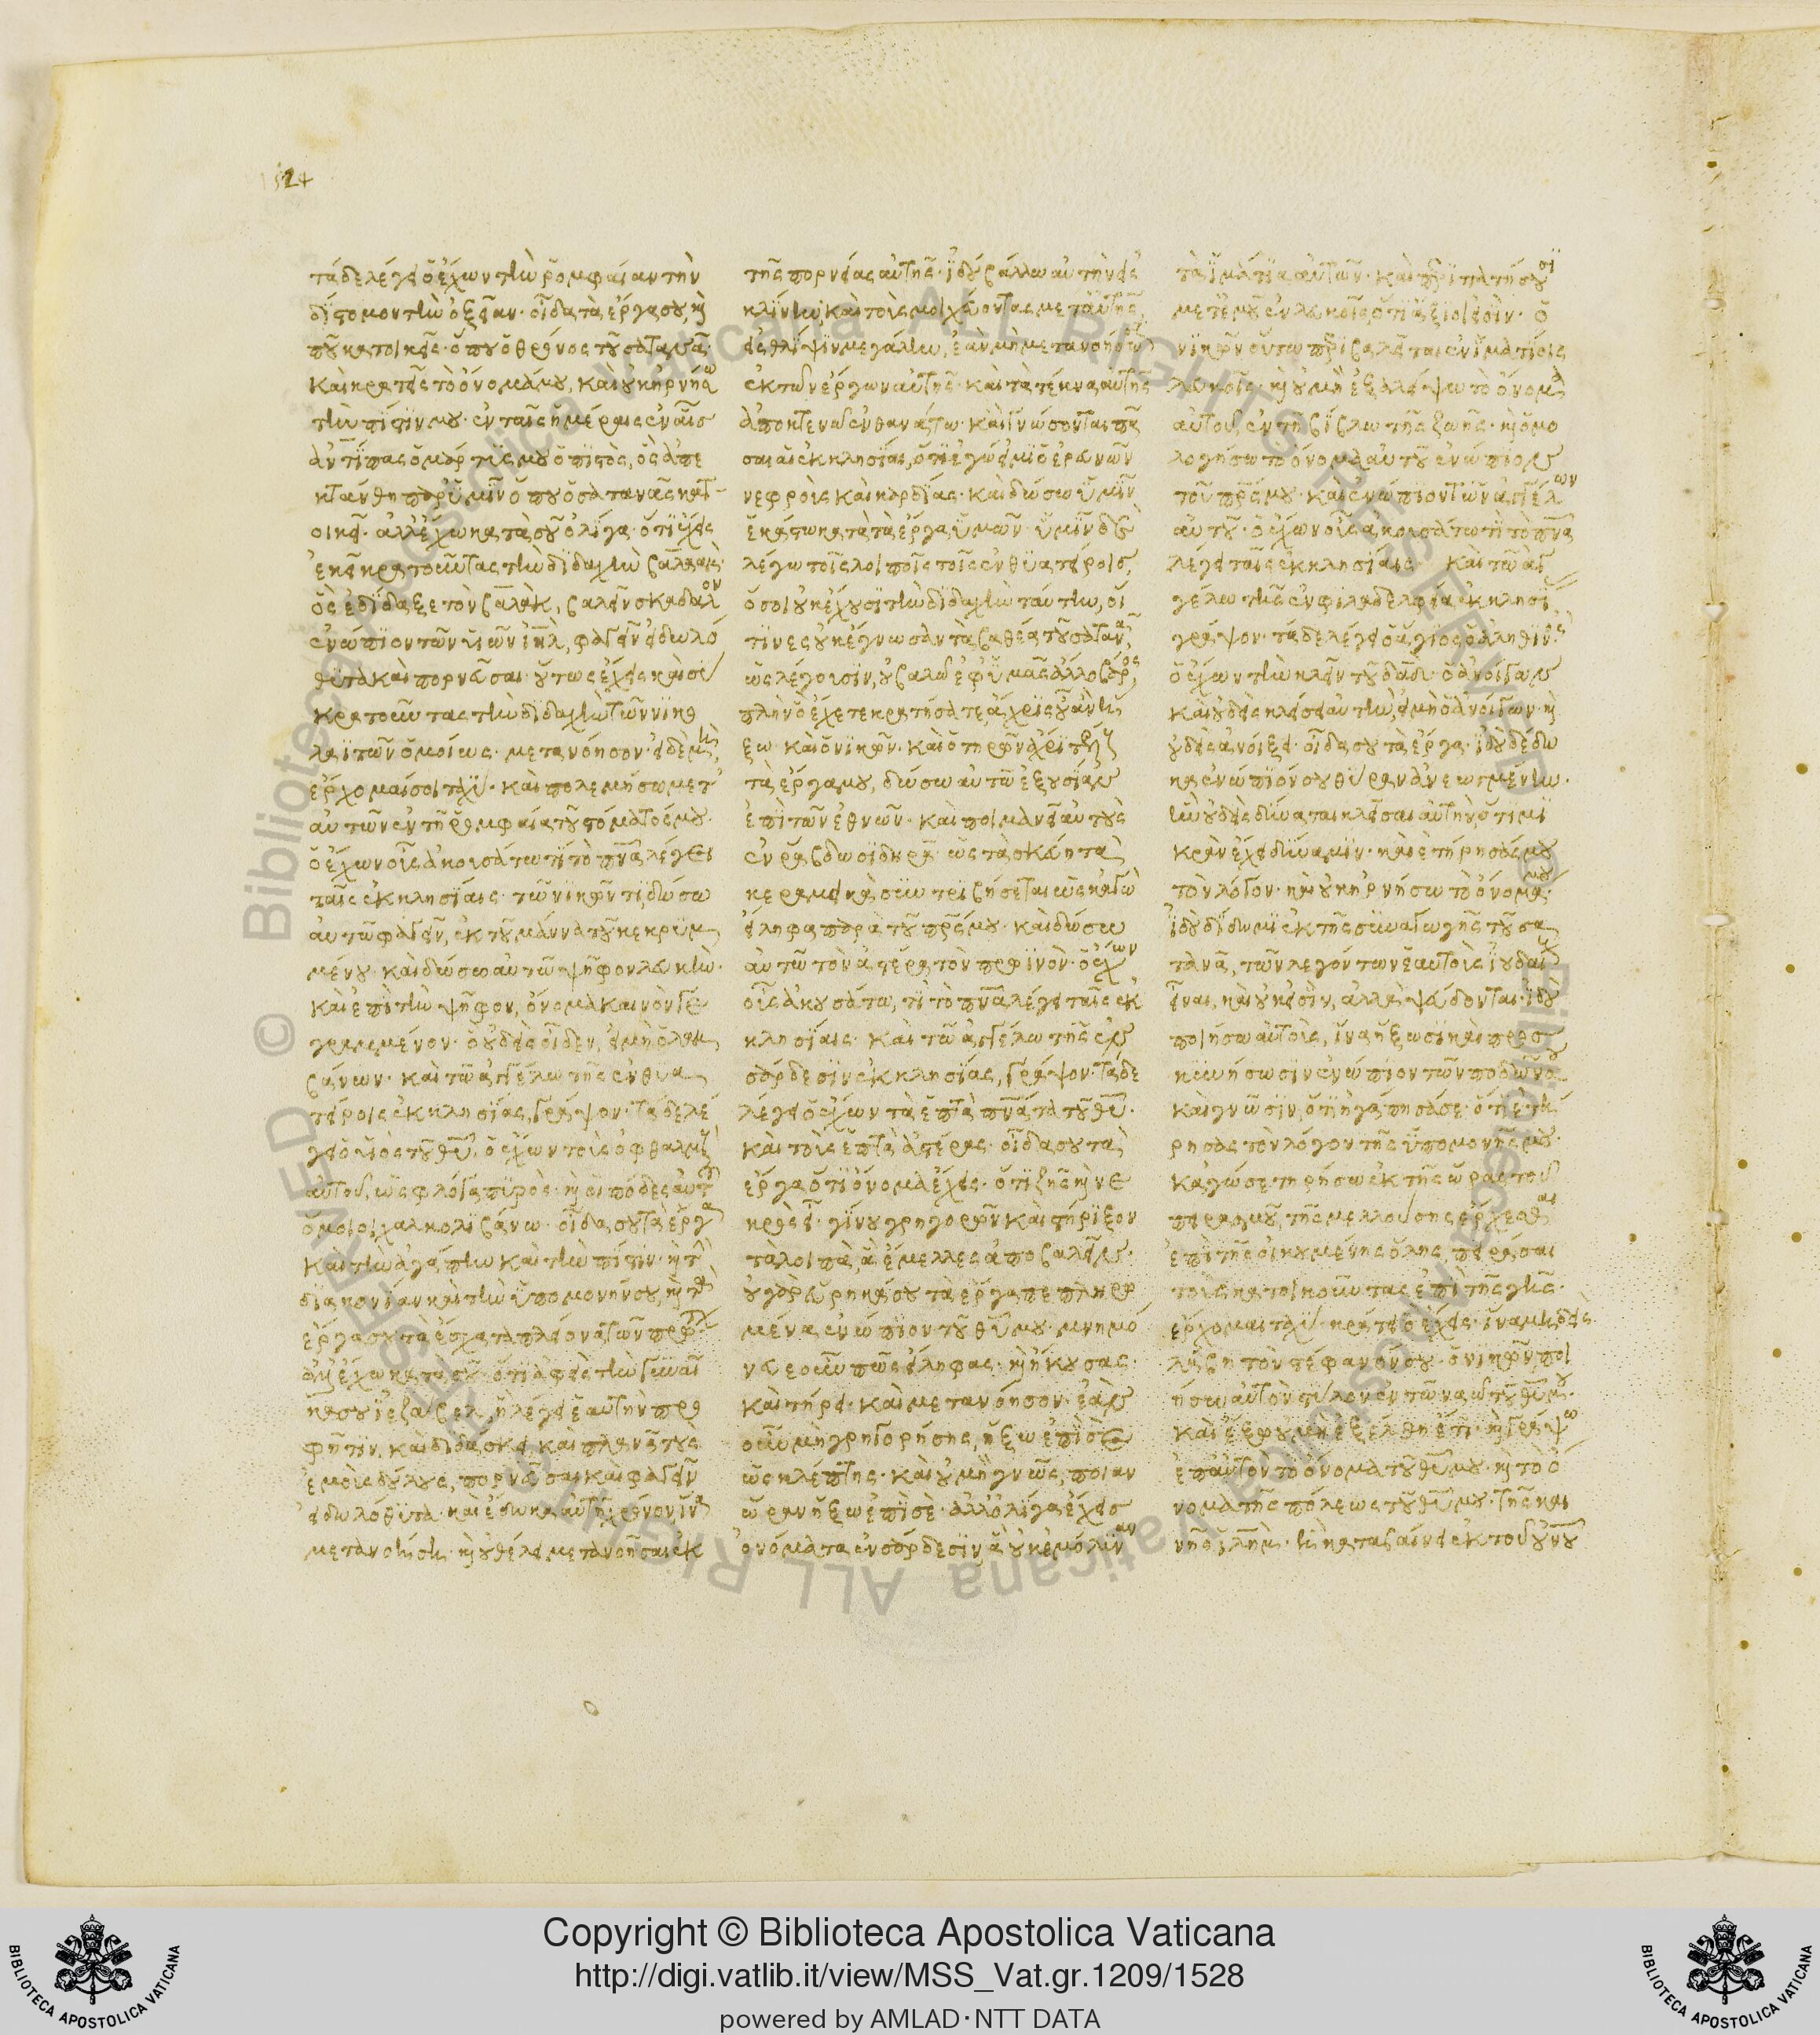 1524
τάδε λέγει ὁ ἔχων τὴν ῥομφαίαν τὴν
δίστομον τὴν ὀξεῖαν· οἶδα τὰ ἔργα σου, καὶ
ποῦ κατοικεῖς· ὅπου ὁ θρόνος τοῦ σατανᾶ·
καὶ κρατεῖς τὸ ὄνομά μου, καὶ οὐκ ἠρνήσω
τὴν πίστιν μου· ἐν ταῖς ἡμέραις ἐν αἷς
ἀντίπας ὁ μάρτυς μου ὁ πιστὸς, ὃς ἀπε
κτάνθη παρ' ὑμῖν ὅπου ὁ σατανᾶς κατ
οικεῖ· ἀλλ' ἔχω κατὰ σοῦ ὀλίγα· ὅτι ἔχεις
ἐκεῖ κρατοῦντας τὴν διδαχὴν βαλαὰμ
ὃς ἐδίδαξε τὸν βαλὰκ, βαλεῖν σκάνδαλον
ἐνώπιον τῶν υἱῶν ἰηλ, φαγεῖν εἰδωλό
θυτα καὶ πορνεῦσαι· οὕτως ἔχεις καὶ σὺ
κρατοῦντας τὴν διδαχὴν τῶν νικο
λαϊτῶν ὁμοίως· μετανόησον· εἰ δὲ μὴ,
ἔρχομαί σοι ταχύ· καὶ πολεμήσω μετ'
αὐτῶν ἐν τῇ ῥομφαίᾳ τοῦ στόματός μου·
ὁ ἔχων οἷς ἀκουσάτω τί τὸ πνα λέγει
ταῖς ἐκκλησίαις· τῷ νικῶντι δώσω
αὐτῷ φαγεῖν, ἐκ τοῦ μάννα τοῦ κεκρυμ
μένου· καὶ δώσω αὐτῷ ψῆφον λευκὴν·
καὶ ἐπὶ τὴν ψῆφον, ὄνομα καινὸν γε
γραμμένον· ὃ οὐδεὶς οἶδεν, εἰ μὴ ὁ λαμ
βάνων· καὶ τῷ ἀγγέλῳ τῆς ἐν θυα
τείροις ἐκκλησίας, γράψον· τάδε λέ
γει ὁ υἱὸς τοῦ θυ, ὁ ἔχων τοὺς ὀφθαλμοὺς
αὐτοῦ, ὡς φλόγα πυρὸς· καὶ οἱ πόδες αὐτοῦ
ὅμοιοι χαλκολιβάνῳ· οἶδά σου τὰ ἔργα
καὶ τὴν ἀγάπην καὶ τὴν πίστιν· καὶ τὴν
διακονίαν καὶ τὴν ὑπομονήν σου, καὶ τὰ
ἔργα σου τὰ ἔσχατα πλείονα τῶν πρώτων·
ἀλλ' ἔχω κατὰ σοῦ· ὅτι ἀφεῖς τὴν γυναῖ
κά σου ἰεζάβελ, ἣ λέγει ἑαυτὴν προ
φῆτιν, καὶ διδάσκει καὶ πλανᾷ τοὺς
ἐμοὺς δούλους, πορνεῦσαι καὶ φαγεῖν
εἰδωλόθυτα· καὶ ἔδωκα αὐτῇ χρόνον ἵνα
μετανοήσῃ· καὶ οὐ θέλει μετανοῆσαι ἐκ
τῆς πορνείας αὐτῆς· ἰδοὺ βάλλω αὐτὴν εἰς
κλίνην, καὶ τοὺς μοιχεύοντας μετ' αὐτῆς,
εἰς θλίψιν μεγάλην, ἐὰν μὴ μετανοήσωσι
ἐκ τῶν ἔργων αὐτῆς· καὶ τὰ τέκνα αὐτῆς
ἀποκτενῶ ἐν θανάτῳ· καὶ γνώσονται πᾶ
σαι αἱ ἐκκλησίαι, ὅτι ἐγώ εἰμι ὁ ἐρευνῶν
νεφροὺς καὶ καρδίας· καὶ δώσω ὑμῖν
ἑκάστῳ κατὰ τὰ ἔργα ὑμῶν· ὑμῖν δὲ
λέγω τοῖς λοιποῖς τοῖς ἐν θυατείροις,
ὅσοι οὐκ ἔχουσι τὴν διδαχὴν ταύτην, οἵ
τινες οὐκ ἔγνωσαν τὰ βαθέα τοῦ σατανᾶ,
ὡς λέγουσιν, οὐ βαλῶ ἐφ' ὑμᾶς ἄλλο βάρος,
πλὴν ὃ ἔχετε κρατήσατε, ἄχρις οὗ ἂν ἥ
ξω· καὶ ὁ νικῶν· καὶ ὁ τηρῶν ἄχρι τέλους
τὰ ἔργα μου, δώσω αὐτῷ ἐξουσίαν
ἐπὶ τῶν ἐθνῶν· καὶ ποιμανεῖ αὐτοὺς
ἐν ῥάβδῳ σιδηρᾷ· ὡς τὰ σκεύη τὰ
κεραμεικὰ συντριβήσεται ὡς κἀγὼ
εἴληφα παρὰ τοῦ πρς μου· καὶ δώσω
αὐτῷ τὸν ἀστέρα τὸν πρωϊνὸν· ὁ ἔχων
οἷς ἀκουσάτω, τί τὸ πνα λέγει ταῖς ἐκ
κλησίαις· καὶ τῷ ἀγγέλῳ τῆς ἐν
σάρδεσιν ἐκκλησίας, γράψον· τάδε
λέγει ὁ ἔχων τὰ ἑπτὰ πνατα τοῦ θυ·
καὶ τοὺς ἑπτὰ ἀστέρας· οἶδά σου τὰ
ἔργα ὅτι ὄνομα ἔχεις· ὅτι ζῇς καὶ νε
κρὸς εἶ· γίνου γρηγορῶν καὶ στήριξον
τὰ λοιπὰ, ἃ ἔμελλες ἀποβαλεῖν·
οὐ γὰρ εὕρηκά σου τὰ ἔργα πεπληρω
μένα ἐνώπιον τοῦ θυ μου· μνημό
νευε οὖν πῶς εἴληφας· καὶ ἤκουσας·
καὶ τήρει· καὶ μετανόησον· ἐὰν
οὖν μὴ γρηγορήσῃς, ἥξω ἐπὶ σὲ
ὡς κλέπτης· καὶ οὐ μὴ γνῷς, ποίαν
ὥραν ἥξω ἐπὶ σέ· ἀλλ' ὀλίγα ἔχεις
ὀνόματα ἐν σάρδεσιν ἃ οὐκ ἐμόλυναν
τὰ ἱμάτια αὐτῶν· καὶ περιπατήσουσι
μετ' ἐμοῦ ἐν λευκοῖς ὅτι ἄξιοί εἰσιν· ὁ
νικῶν οὕτω περιβαλεῖται ἐν ἱματίοις
λευκοῖς· καὶ οὐ μὴ ἐξαλείψω τὸ ὄνομα
αὐτοῦ, ἐν τῇ βίβλῳ τῆς ζωῆς· καὶ ὁμο
λογήσω τὸ ὄνομα αὐτοῦ ἐνώπιον
τοῦ πρς μου· καὶ ἐνώπιον τῶν ἀγγέλων
αὐτοῦ· ὁ ἔχων οἷς ἀκουσάτω τί τὸ πνα
λέγει ταῖς ἐκκλησίαις· καὶ τῷ ἀγ
γέλῳ τῆς ἐν φιλαδελφείᾳ ἐκκλησίας
γράψον· τάδε λέγει ὁ ἅγιος ὁ ἀληθινὸς
ὁ ἔχων τὴν κλεῖν τοῦ δαδ· ὁ ἀνοίγων
καὶ οὐδεὶς κλείσει αὐτὴν, εἰ μὴ ὁ ἀνοίγων· καὶ
οὐδεὶς ἀνοίξει· οἶδά σου τὰ ἔργα· ἰδοὺ δέδω
κα ἐνώπιόν σου θύραν ἀνεῳγμένην·
ἣν οὐδεὶς δύναται κλεῖσαι αὐτὴν, ὅτι μι
κρὰν ἔχεις δύναμιν· καὶ ἐτήρησάς μου
τὸν λόγον· καὶ οὐκ ἠρνήσω τὸ ὄνομά μου·
ἰδοὺ δίδωμι ἐκ τῆς συναγωγῆς τοῦ σα
τανᾶ, τῶν λεγόντων ἑαυτοὺς ἰουδαίους
εἶναι, καὶ οὐκ εἰσὶν, ἀλλὰ ψεύδονται· ἰδοὺ
ποιήσω αὐτοὺς, ἵνα ἥξωσι καὶ προσ
κυνήσωσιν ἐνώπιον τῶν ποδῶν σου
καὶ γνῶσιν, ὅτι ἠγάπησά σε· ὅτι ἐτή
ρησας τὸν λόγον τῆς ὑπομονῆς μου·
κἀγώ σε τηρήσω ἐκ τῆς ὥρας τοῦ
πειρασμοῦ, τῆς μελλούσης ἔρχεσθαι
ἐπὶ τῆς οἰκουμένης ὅλης, πειράσαι
τοὺς κατοικοῦντας ἐπὶ τῆς γῆς·
ἔρχομαι ταχύ· κράτει ὃ ἔχεις· ἵνα μηδεὶς
λάβῃ τὸν στέφανόν σου· ὁ νικῶν ποι
ήσω αὐτὸν στύλον ἐν τῷ ναῷ τοῦ θυ μου·
καὶ ἔξω οὐ μὴ ἐξέλθῃ ἔτι· καὶ γράψω
ἐπ' αὐτὸν τὸ ὄνομα τοῦ θυ μου· καὶ τὸ ὄ
νομα τῆς πόλεως τοῦ θυ μου· τῆς και
νῆς ἱλημ· ἣ καταβαίνει ἐκ τοῦ οὐνου
© Biblioteca Apostolica Vaticana ALL RIGHTS RESERVED
Copyright © Biblioteca Apostolica Vaticana
http://digi.vatlib.it/view/MSS_Vat.gr.1209/1528
powered by AMLAD·NTT DATA
BIBLIOTECA APOSTOLICA VATICANA
BIBLIOTECA APOSTOLICA VATICANA